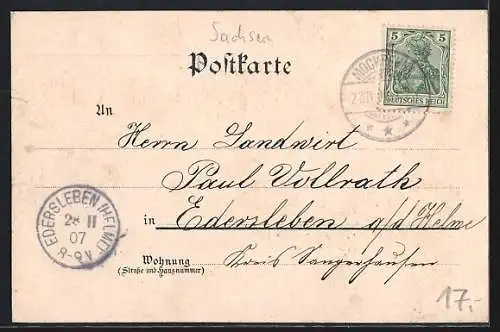 Sachsen
Postkarte
5 5
DEUTSCHES REICH
An
Herrn Landwirt
Paul Vollrath
in Edersleben a/d Helme
Wohnung
(Straße und Hausnummer)
Kreis Sangerhausen
EDERSLEBEN (HELME)
2* II
07
8-9V
17.-